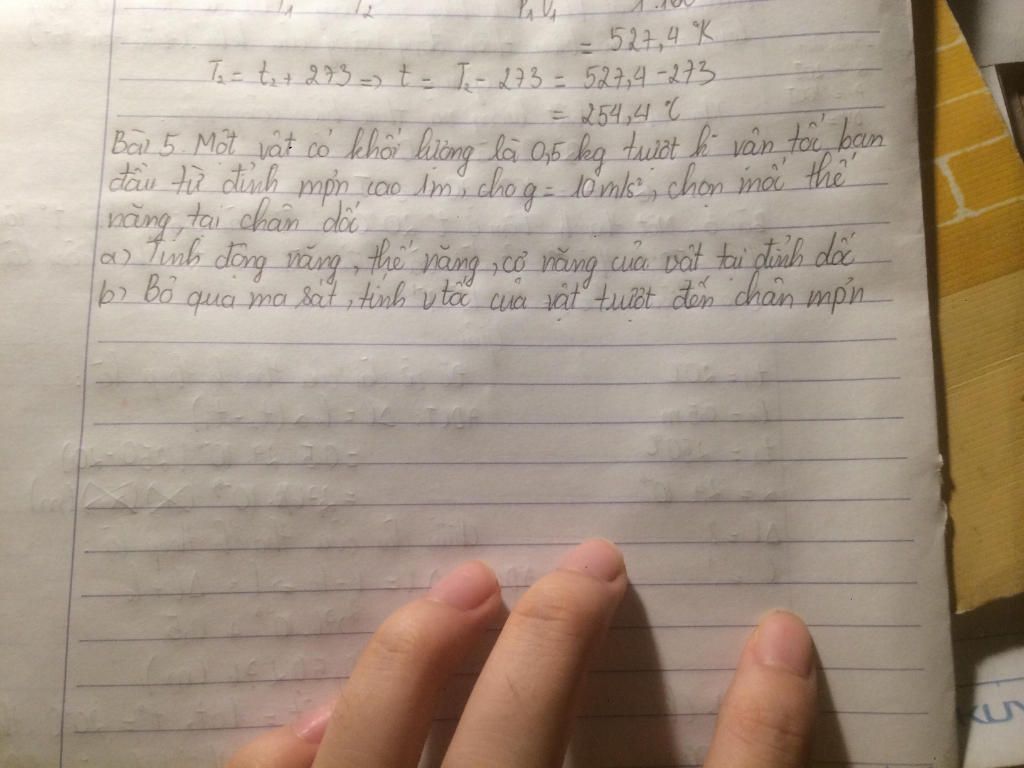 = 527,4 °K
T₂ = t₂ + 273 => t = T₂ - 273 = 527,4 - 273
= 254,4 °C
Bài 5. Một vật có khối lượng là 0,5 kg trượt k vận tốc ban
đầu từ đỉnh mpn cao 1m, cho g = 10m/s², chọn mốc thế
năng, tại chân dốc
a) Tính động năng, thế năng, cơ năng của vật tại đỉnh dốc
b) Bỏ qua ma sát, tính v tốc của vật trượt đến chân mpn